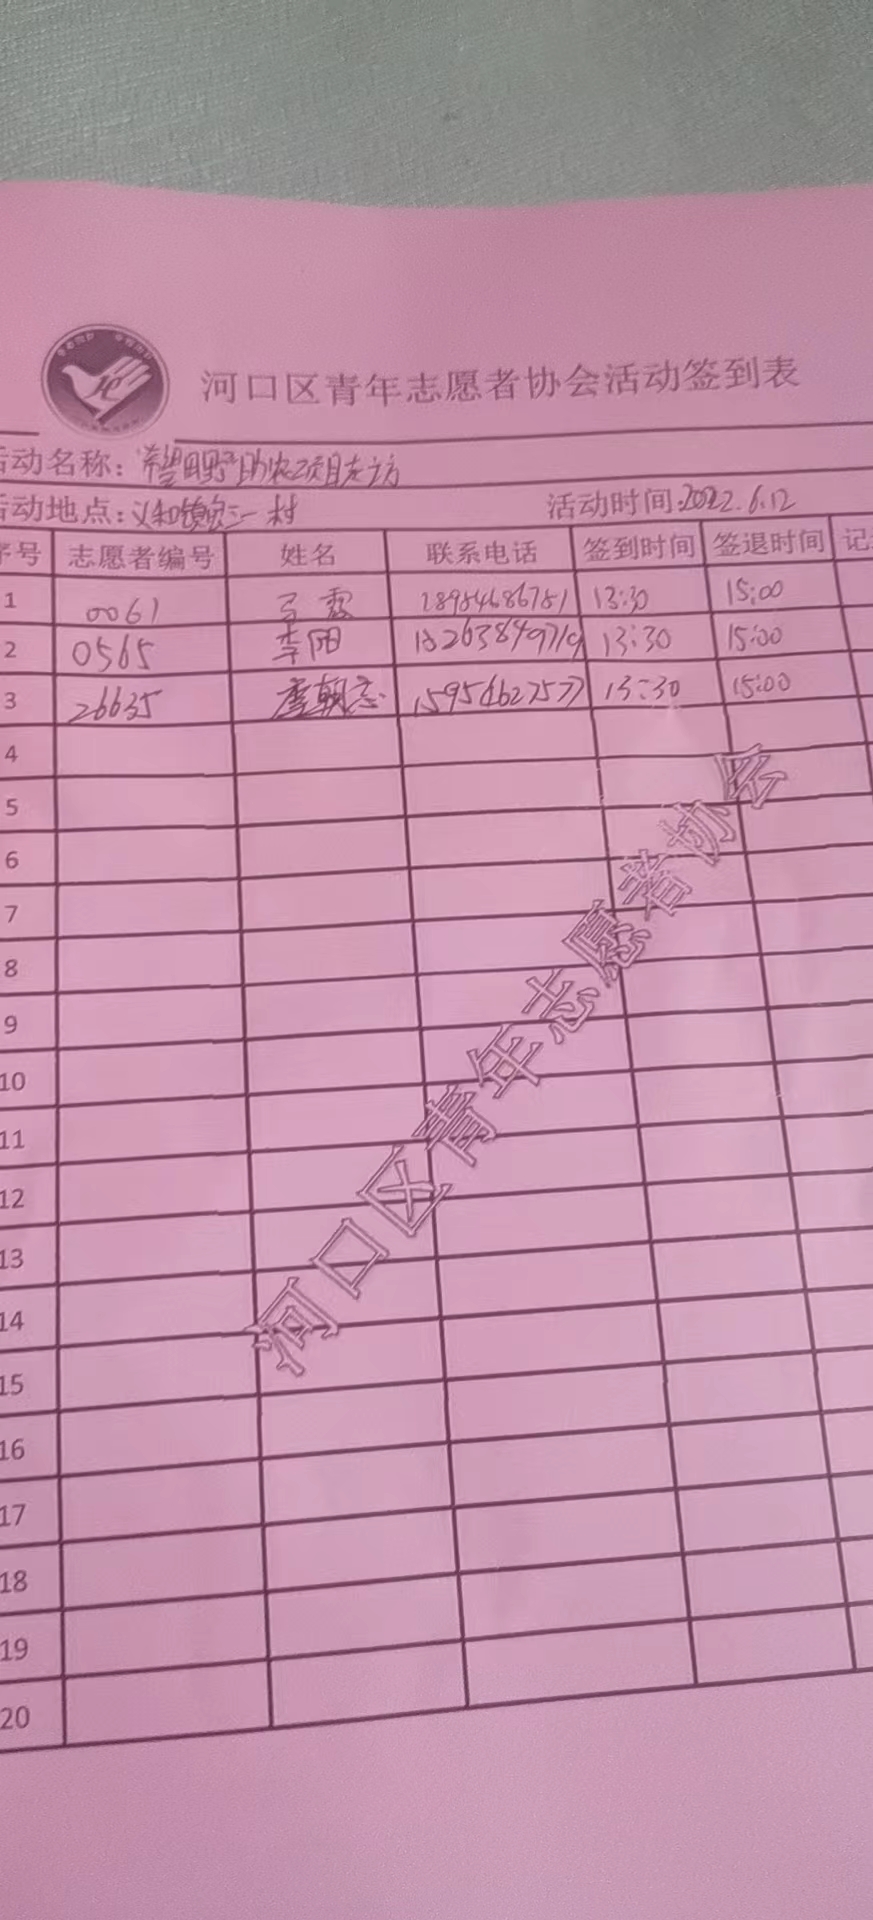 河口区青年志愿者协会活动签到表
活动名称：希望田野助农项目走访
活动地点：义和镇 一村 活动时间：2022.6.12
序号 志愿者编号 姓名 联系电话 签到时间 签退时间 记
1 0061 18954686781 13:30 15:00
2 0565 李阳 18263849719 13:30 15:00
3 26635 唐朝志 15954627577 13:30 15:00
4
5
6
7
8
9
10
11
12
13
14
15
16
17
18
19
20
河口区青年志愿者协会